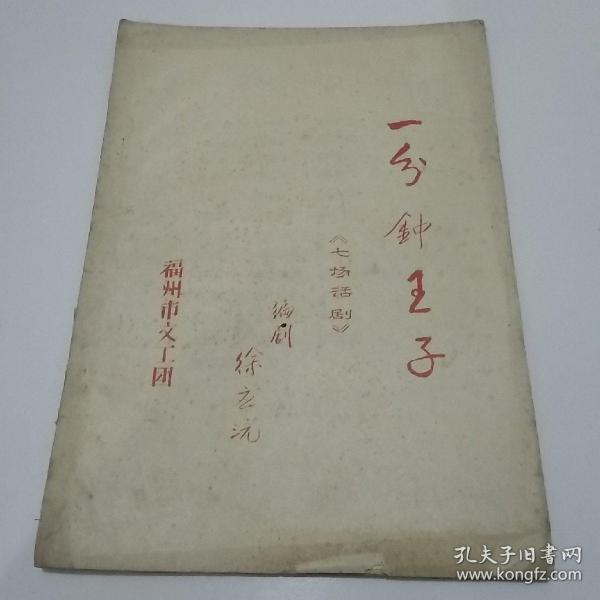 一分钟王子
《七场话剧》
编剧
徐立沅
福州市文工团
孔夫子旧书网
www.kongfz.com